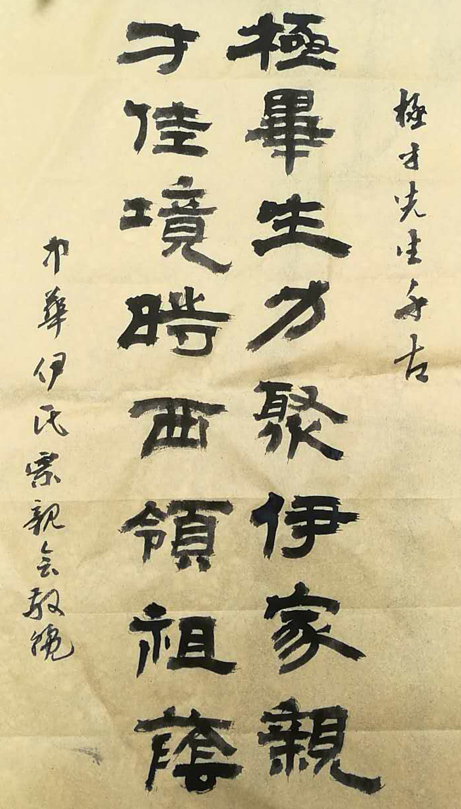 極才先生千古
極畢生力聚伊家親
才佳境時西領祖蔭
中華伊氏宗親会敬輓